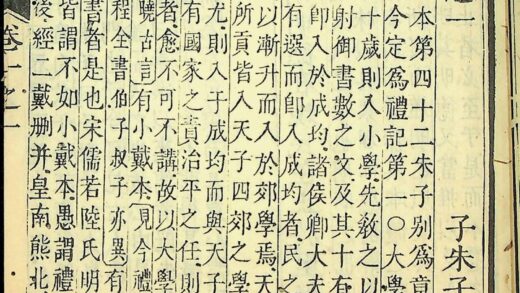 子朱子
本第四十二朱子別爲章
今定爲禮記第一〇大學
十歲則入小學先敎之以
射御書數之文及其十有
卽入於成均諸侯卿大夫
有選而卽入於成均者民之
以漸升而入於郊學焉天
所貢皆入天子四郊之學
尤則入于成均而與天子
有國家之責治平之任則
者愈不可不講故以大學
曉古言有小戴本見今禮
程全書伯子叔子亦異有
書者是也宋儒若陸氏明
皆謂不如小戴本愚謂禮
後經二戴删并皇南熊北
卷一之一